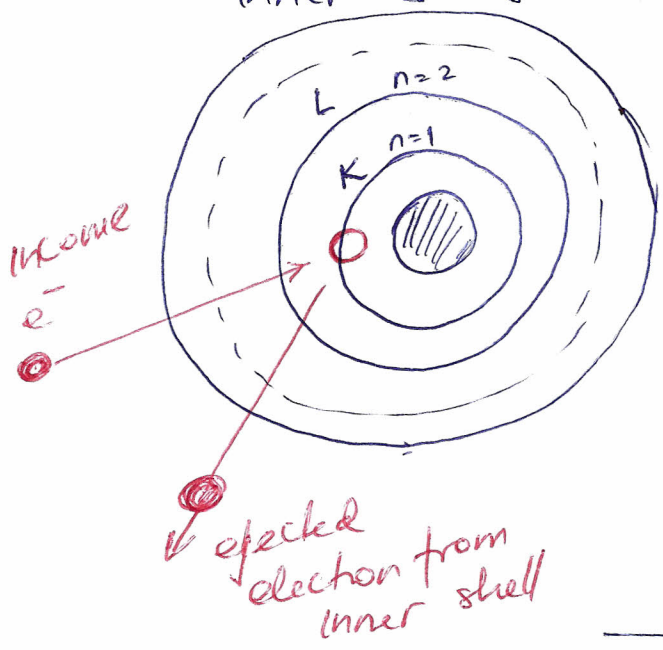 inner
L n=2
K n=1
Income
e⁻
ejected
election from
inner shell